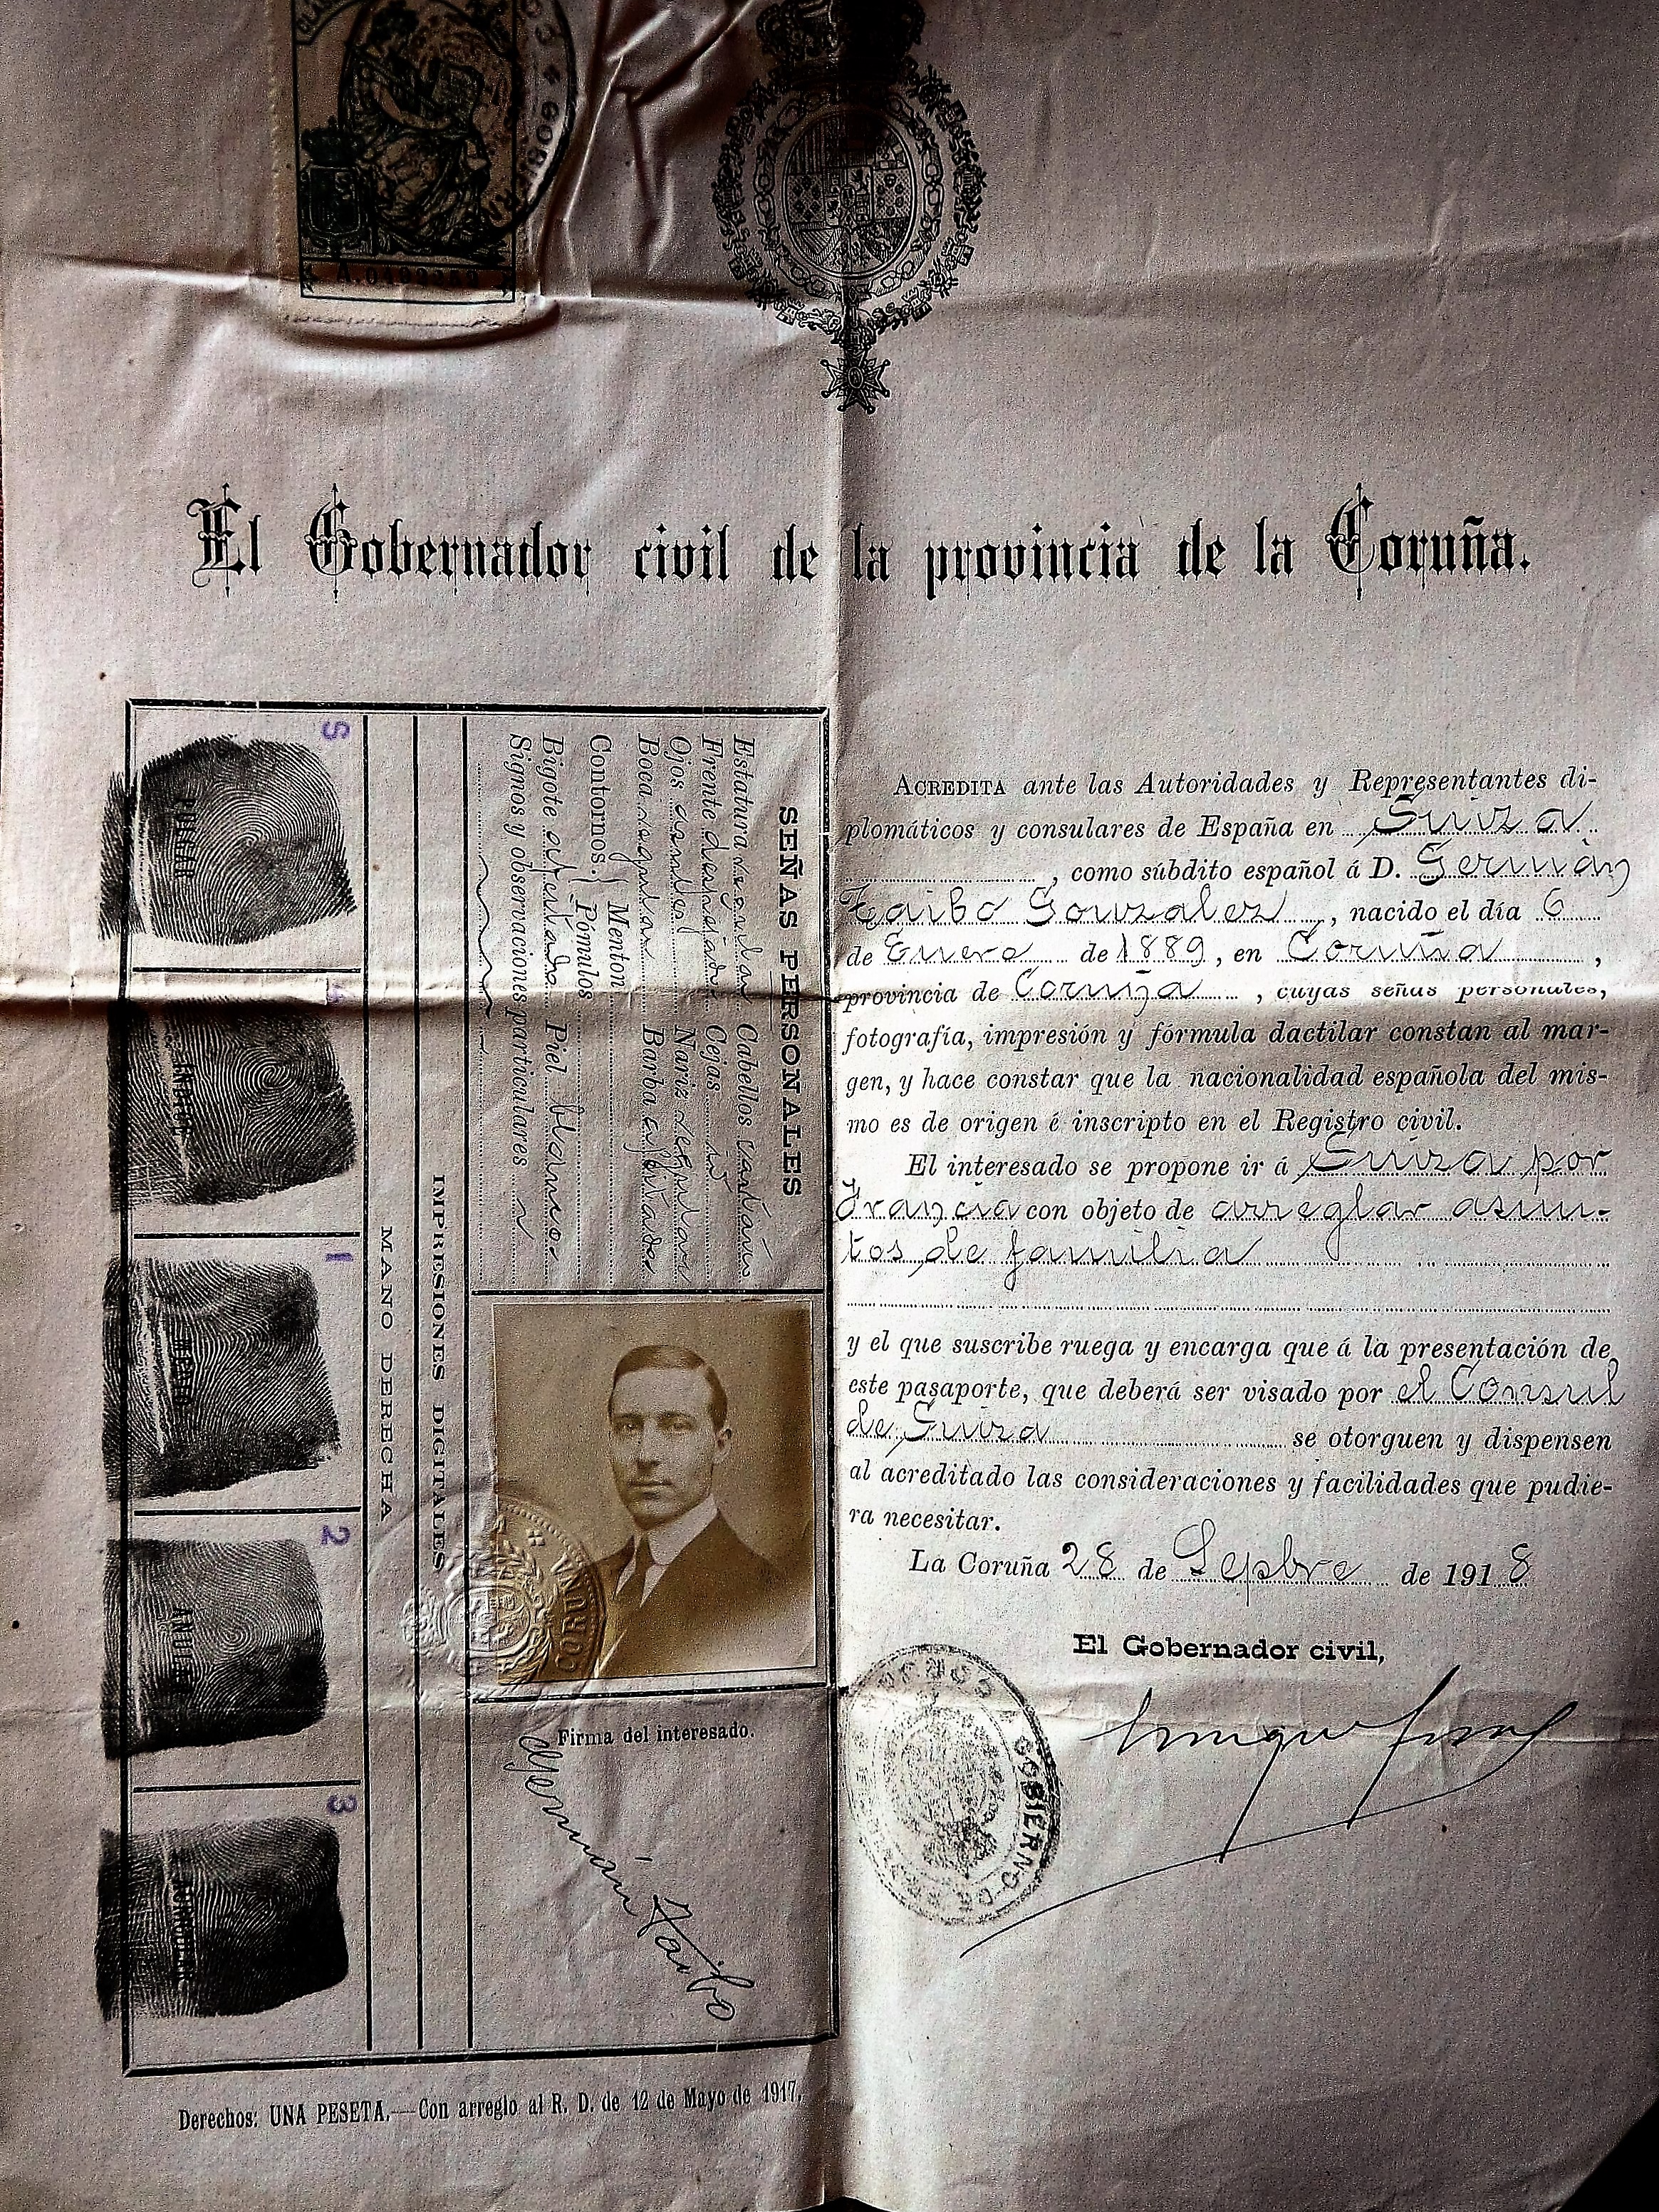 A.0
El Gobernador civil de la provincia de la Coruña.
ACREDITA ante las Autoridades y Representantes di-
plomáticos y consulares de España en Suiza
, como súbdito español á D. Germán
Taibo Gonzalez, nacido el día 6
de Enero de 1889, en Coruña,
provincia de Coruña, cuyas señas personales,
fotografía, impresión y fórmula dactilar constan al mar-
gen, y hace constar que la nacionalidad española del mis-
mo es de origen é inscripto en el Registro civil.
El interesado se propone ir á Suiza por
Francia con objeto de arreglar asun-
tos de familia
y el que suscribe ruega y encarga que á la presentación de
este pasaporte, que deberá ser visado por el Consul
de Suiza se otorguen y dispensen
al acreditado las consideraciones y facilidades que pudie-
ra necesitar.
La Coruña 28 de Sepbre de 1918
El Gobernador civil,
GOBIERNO
SEÑAS PERSONALES
Estatura regular Cabellos castaño
Frente despejada Cejas id
Ojos Nariz regular
Boca regular Barba afeitada
Contornos. { Menton
Pómulos
Bigote afeitado Piel blanca
Signos y observaciones particulares
CORUÑA
Firma del interesado.
Germán Taibo
IMPRESIONES DIGITALES
MANO DERECHA
S
PULGAR
INDICE
1
MEDIO
2
ANULAR
3
AURICULAR
Derechos: UNA PESETA.—Con arreglo al R. D. de 12 de Mayo de 1917.